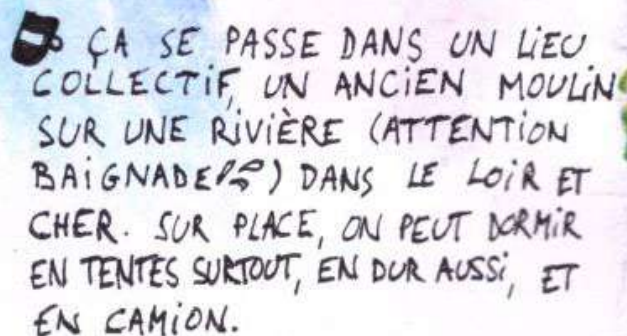 ÇA SE PASSE DANS UN LIEU
COLLECTIF, UN ANCIEN MOULIN
SUR UNE RIVIÈRE (ATTENTION
BAIGNADE) DANS LE LOIR ET
CHER. SUR PLACE, ON PEUT DORMIR
EN TENTES SURTOUT, EN DUR AUSSI, ET
EN CAMION.